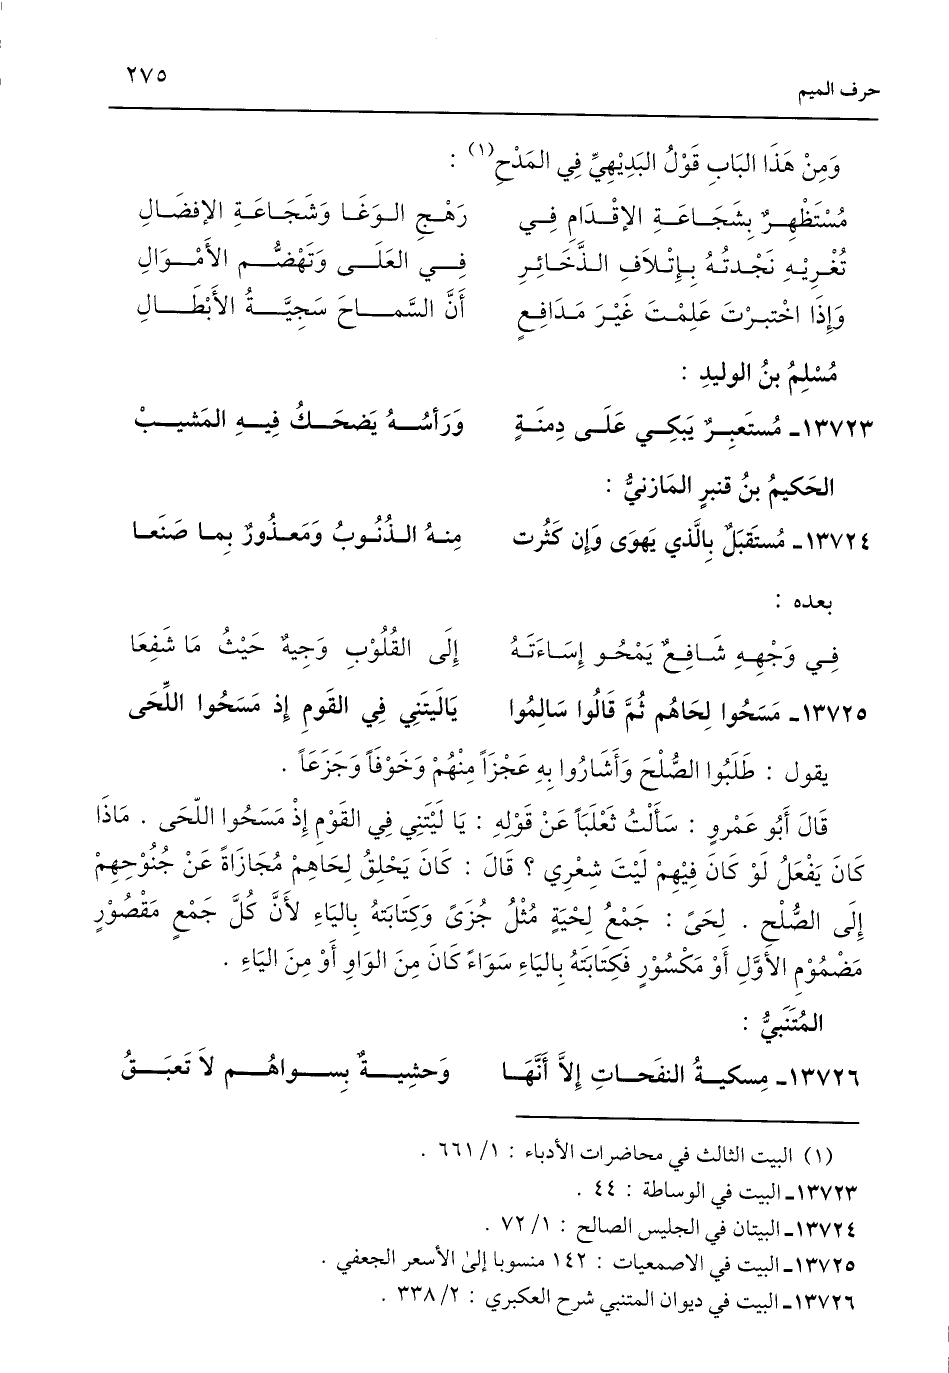 حرف الميم ٢٧٥
وَمِنْ هَذَا البَابِ قَوْلُ البَدِيْهِيِّ فِي المَدْحِ(١) :
مُسْتَظْهِرٌ بِشَجَاعَةِ الإقْدَامِ فِي رَهْجِ الوَغَا وَشَجَاعَةِ الإفضَالِ
تُغْرِيْهِ نَجْدتُهُ بِإتْلَافِ الذَّخَائِرِ فِي العَلَى وَتَهْضُّمِ الأمْوَالِ
وَإذَا اخْتبرْتَ عَلِمْتَ غَيْرَ مَدَافِعٍ أنَّ السَّمَاحَ سَجِيَّةُ الأبْطَالِ
مُسْلِمُ بنُ الوليدِ :
١٣٧٢٣ـ مُستَعبِرٌ يَبكِي عَلَى دِمنَةٍ وَرَأسُهُ يَضحَكُ فِيهِ المَشيبْ
الحَكيمُ بنُ قنبرٍ المَازنيُّ :
١٣٧٢٤ـ مُستَقبَلٌ بِالَّذي يَهوَى وَإن كَثُرت مِنهُ الذُنُوبُ وَمَعذُورٌ بِما صَنَعا
بعده :
فِي وَجْهِهِ شَافِعٌ يَمْحُو إسَاءَتَهُ إلَى القُلُوْبِ وَجِيهٌ حَيْثُ مَا شَفِعَا
١٣٧٢٥ـ مَسَحُوا لِحَاهُم ثُمَّ قَالُوا سَالِمُوا يَالَيتَنِي فِي القَومِ إذ مَسَحُوا اللِّحَى
يقول : طَلَبُوا الصُّلْحَ وَأشَارُوا بِهِ عَجْزَاً مِنْهُمْ وَخَوْفَاً وَجَزَعَاً .
قَالَ أبُو عَمْروٍ : سَألْتُ ثَعْلَبَاً عَنْ قَوْلِهِ : يَا لَيْتَنِي فِي القَوْمِ إذْ مَسَحُوا اللّحَى . مَاذَا
كَانَ يَفْعَلُ لَوْ كَانَ فِيْهِمْ لَيْتَ شِعْرِي ؟ قَالَ : كَانَ يَحْلِقُ لِحَاهِمْ مُجَازَاةً عَنْ جُنُوْحِهِمْ
إلَى الصُّلْحِ . لِحَىً : جَمْعُ لِحْيَةٍ مُثْلُ جُزَىً وَكِتَابَتهُ بِاليَاءِ لأنَّ كُلَّ جَمْعٍ مَقْصُوْرٍ
مَضْمُوْمِ الأوَّلِ أوْ مَكْسُوْرٍ فَكِتَابَتَهُ بِاليَاءِ سَوَاءً كَانَ مِنَ الوَاوِ أوْ مِنَ اليَاءِ .
المُتَنَبِيُّ :
١٣٧٢٦ـ مِسكيةُ النفَحاتِ إلاَّ أنَّهَا وَحشِيةٌ بِسواهُم لاَ تَعبَقُ
(١) البيت الثالث في محاضرات الأدباء : ١/ ٦٦١ .
١٣٧٢٣ـ البيت في الوساطة : ٤٤ .
١٣٧٢٤ـ البيتان في الجليس الصالح : ١/ ٧٢ .
١٣٧٢٥ـ البيت في الاصمعيات : ١٤٢ منسوبا إلى الأسعر الجعفي .
١٣٧٢٦ـ البيت في ديوان المتنبي شرح العكبري : ٢/ ٣٣٨ .